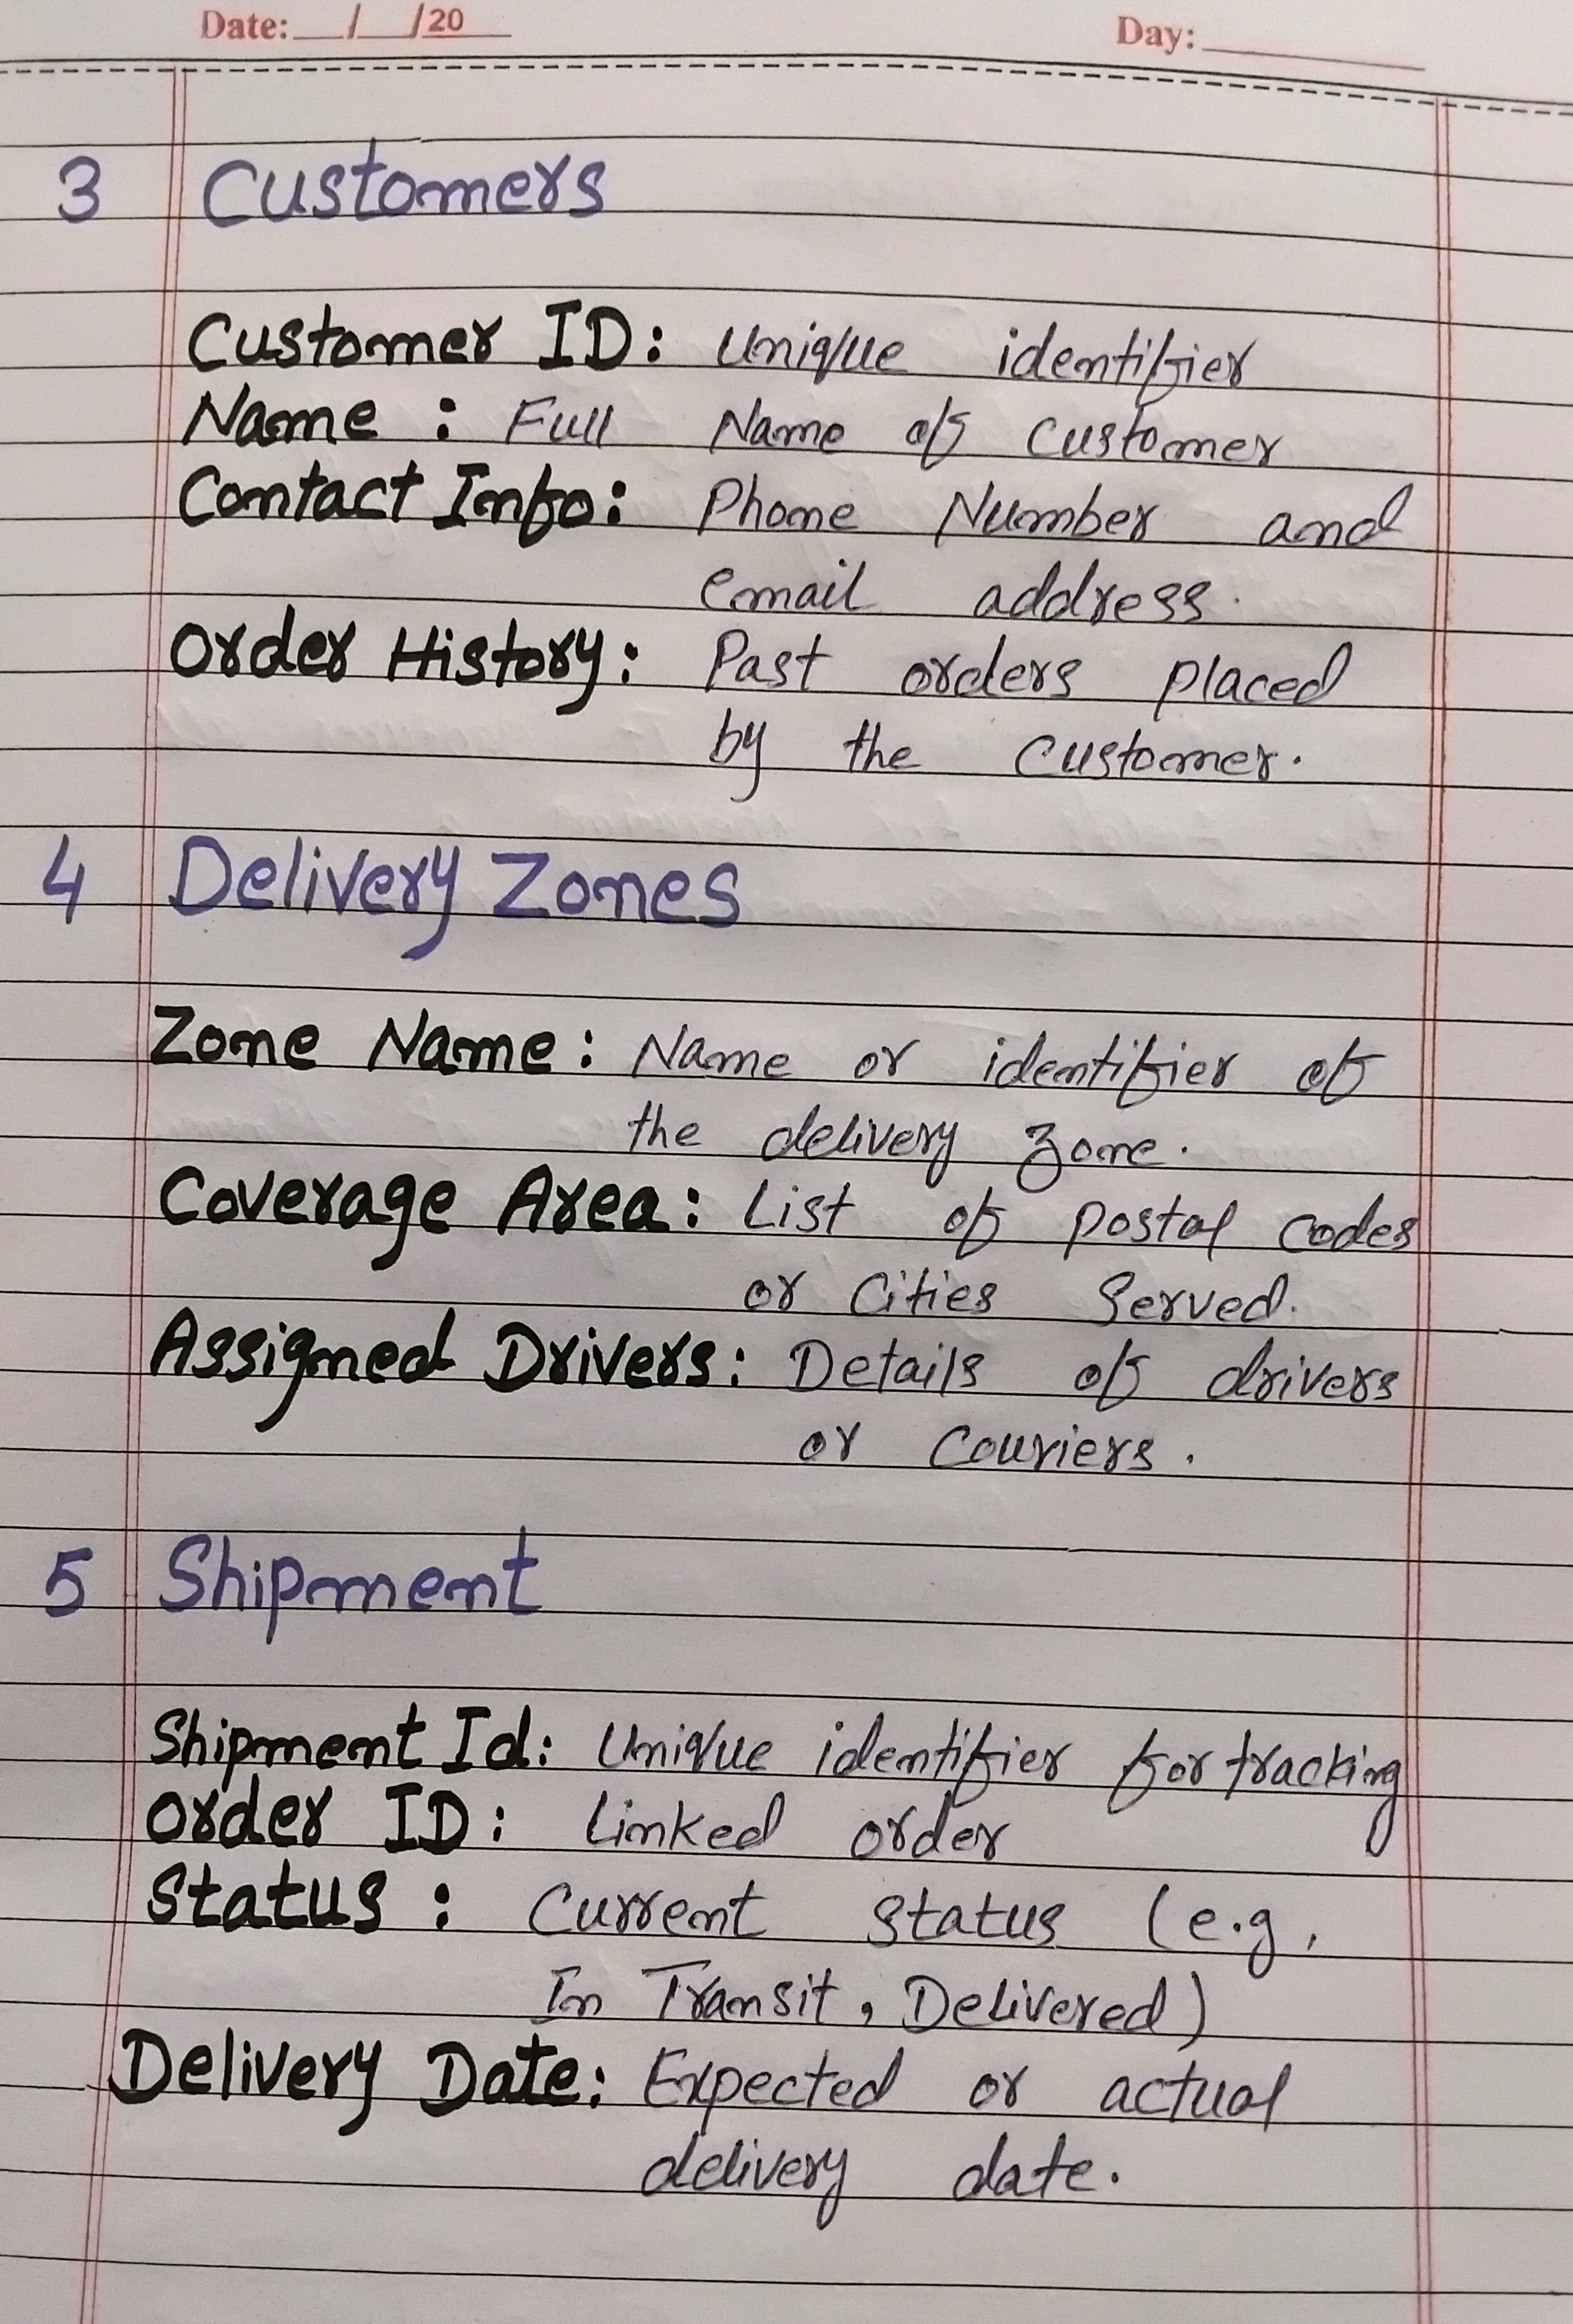 Date: __/__/20__ Day: ______
3 Customers
Customer ID: Unique identifier
Name : Full Name of Customer
Contact Info: Phone Number and
email address.
Order History: Past orders placed
by the Customer.
4 Delivery Zones
Zone Name: Name or identifier of
the delivery zone.
Coverage Area: List of postal codes
or Cities Served.
Assigned Drivers: Details of drivers
or Couriers.
5 Shipment
Shipment Id: Unique identifier for tracking
Order ID: Linked order
Status : Current Status (e.g,
In Transit, Delivered)
Delivery Date: Expected or actual
delivery date.